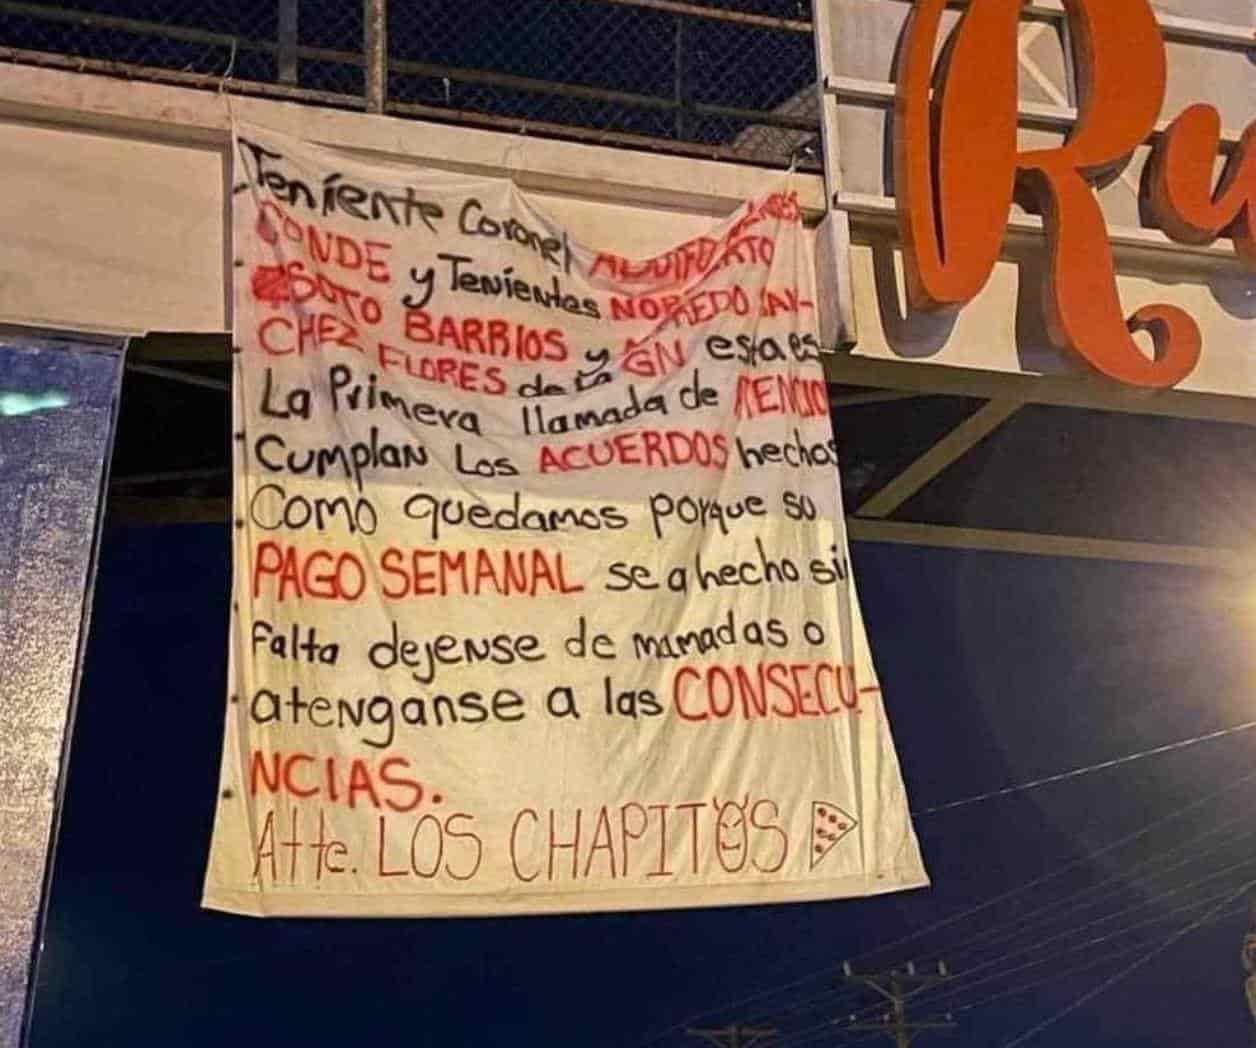 Teniente Coronel
CONDE y Tenientes NOREDO SAN-
SOTO BARRIOS y GN esta es
CHEZ FLORES de la
La Primera llamada de
Cumplan Los ACUERDOS hechos
Como quedamos porque su
PAGO SEMANAL se a hecho sin
Falta dejense de mamadas o
atenganse a las CONSECU-
NCIAS.
Atte. LOS CHAPITOS
Ru